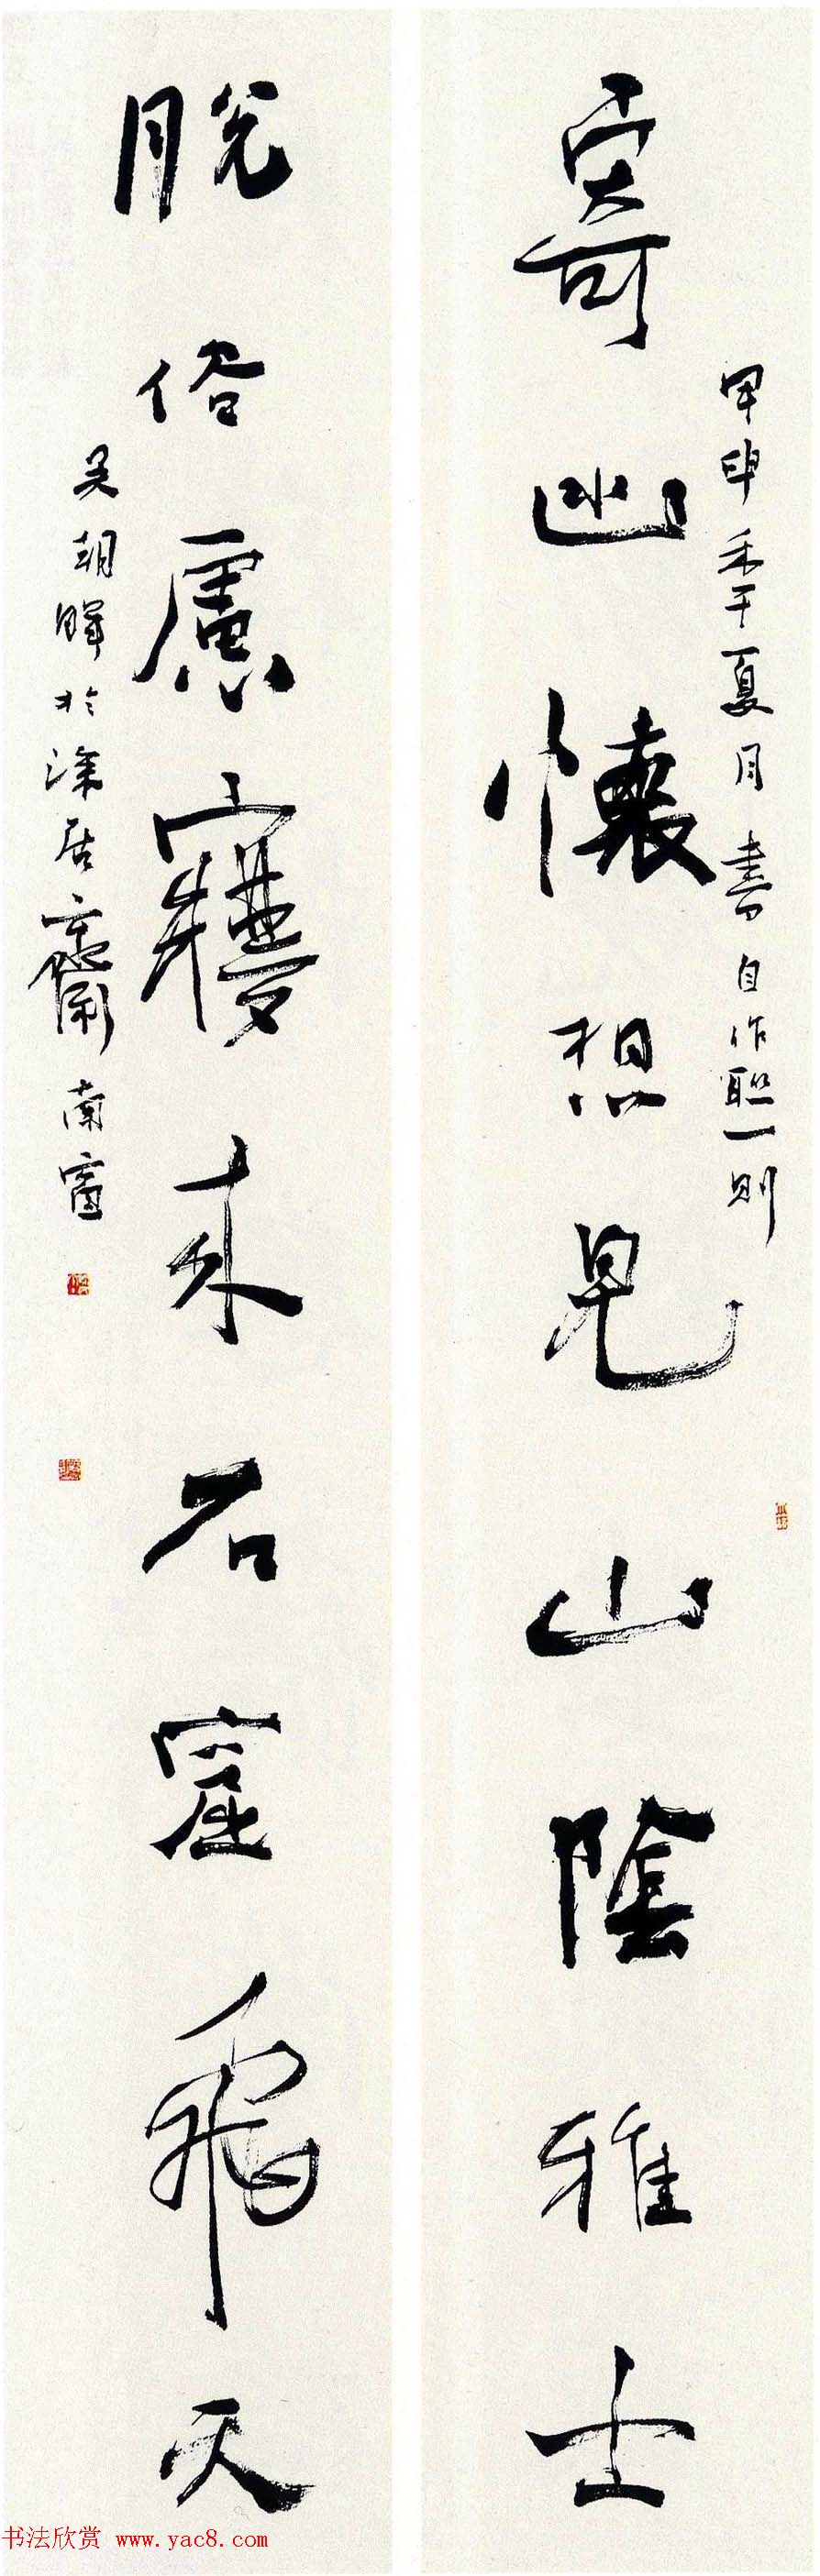 寄幽懷想見山陰雅士
甲申年夏月書自作聯一則
脫俗慮寤來石窟飛天
吴朝暉於滌居齋南窗
书法欣赏 www.yac8.com